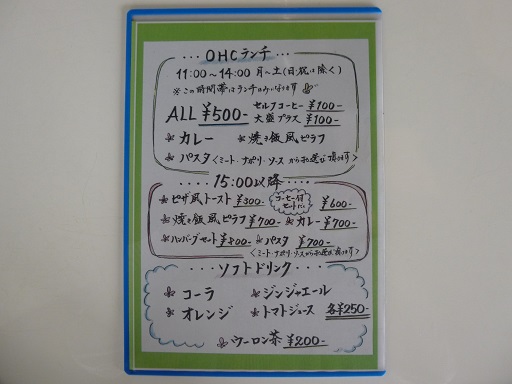 OHCランチ
11:00～14:00 月～土(日・祝は除く)
※この時間帯はランチのみになります
ALL ¥500- セルフコーヒー ¥100-
大盛プラス ¥100-
カレー 焼き飯風ピラフ
パスタ <ミート・ナポリ・ソースからお選び頂けます>
15:00以降
ピザ風トースト ¥300- コーヒー付セット ¥600-
焼き飯風ピラフ ¥700- カレー ¥700-
ハンバーグセット ¥800- パスタ ¥700-
<ミート・ナポリ・ソースからお選び頂けます>
ソフトドリンク
コーラ ジンジャエール
オレンジ トマトジュース 各¥250-
ウーロン茶 ¥200-